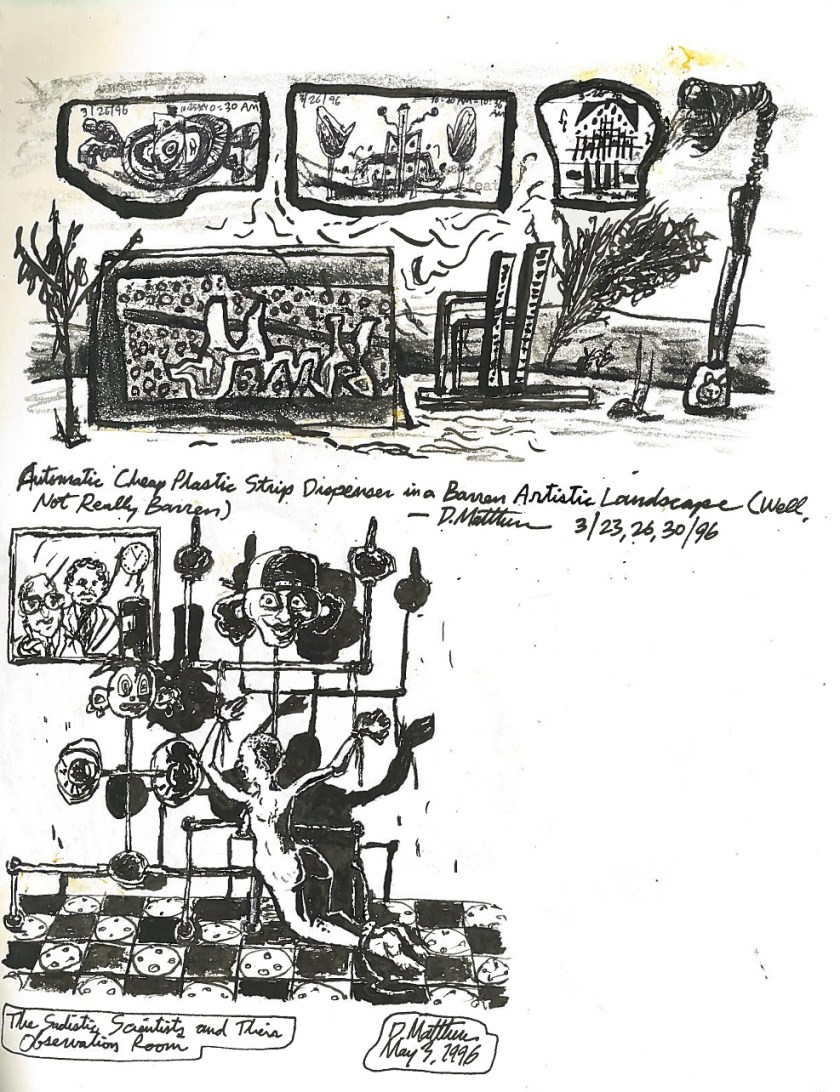 3/26/96
10:30 AM
3/26/96
Automatic Cheap Plastic Strip Dispenser in a Barren Artistic Landscape (Well,
Not Really Barren)
— D. Matthew 3/23,26,30/96
The Sadistic Scientists and Their
Observation Room
D. Matthew
May 3, 1996